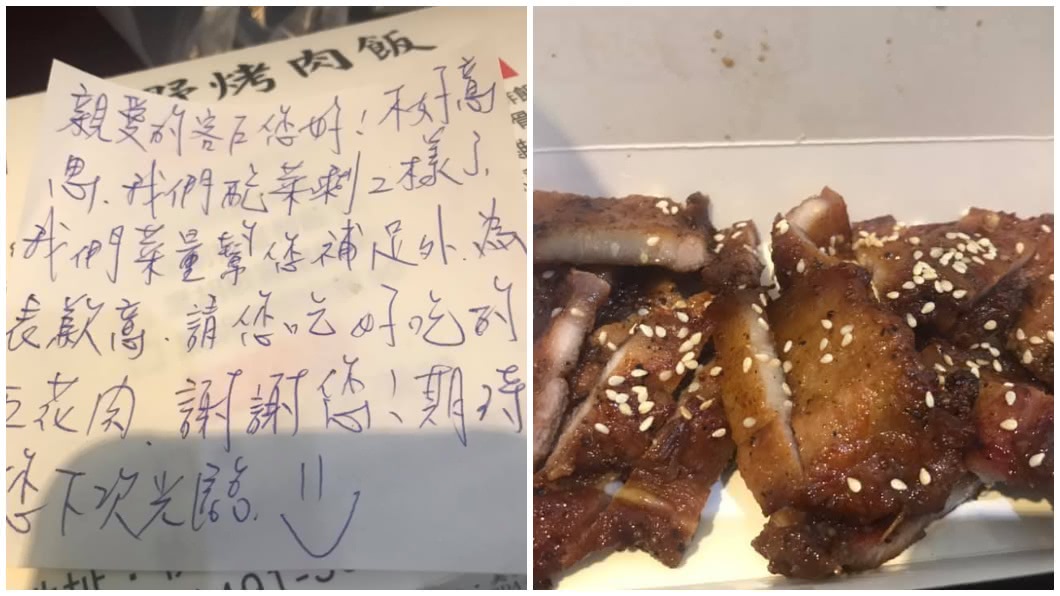 烤肉飯
親愛的客戶您好！不好意
思、我們配菜剩2樣了，
我們菜量幫您補足外.為
表歉意.請您吃好吃的
五花肉.謝謝您！期待
您下次光臨.